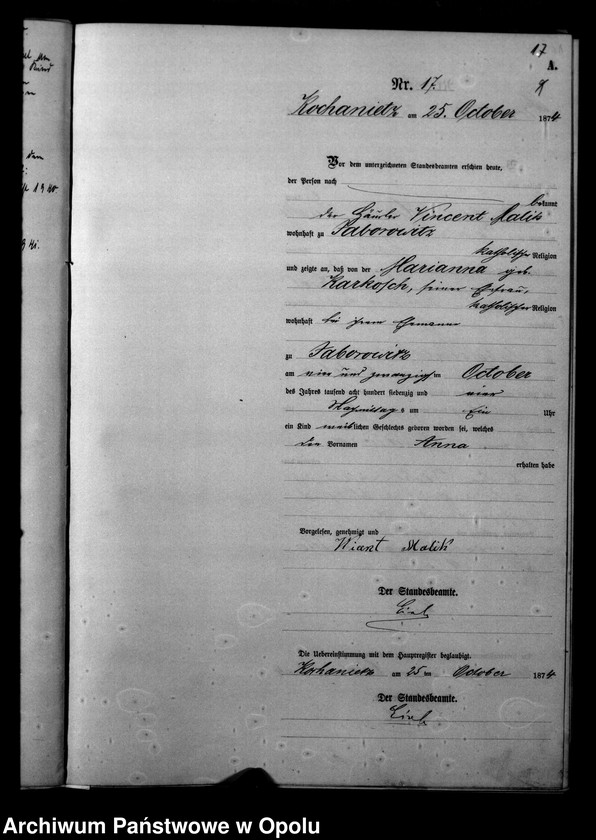 17
A.
Nr. 17.
Kochanietz am 25. October 1874
Vor dem unterzeichneten Standesbeamten erschien heute,
der Person nach
bekannt
der Häusler Vincent Malik
wohnhaft zu Taborowitz
katholischer Religion
und zeigte an, daß von der Marianna geb.
Karkosch, seiner Ehefrau,
katholischer Religion
wohnhaft bei ihrem Ehemanne
zu Taborowitz
am vier und zwanzigsten October
des Jahres tausend acht hundert siebenzig und vier
Nachmittags um Ein Uhr
ein Kind weiblichen Geschlechts geboren worden sei, welches
den Vornamen Anna
erhalten habe
Vorgelesen, genehmigt und
Malik
Der Standesbeamte.
Die Uebereinstimmung mit dem Hauptregister beglaubigt.
Kochanietz am 25 ten October 1874
Der Standesbeamte.
Archiwum Państwowe w Opolu